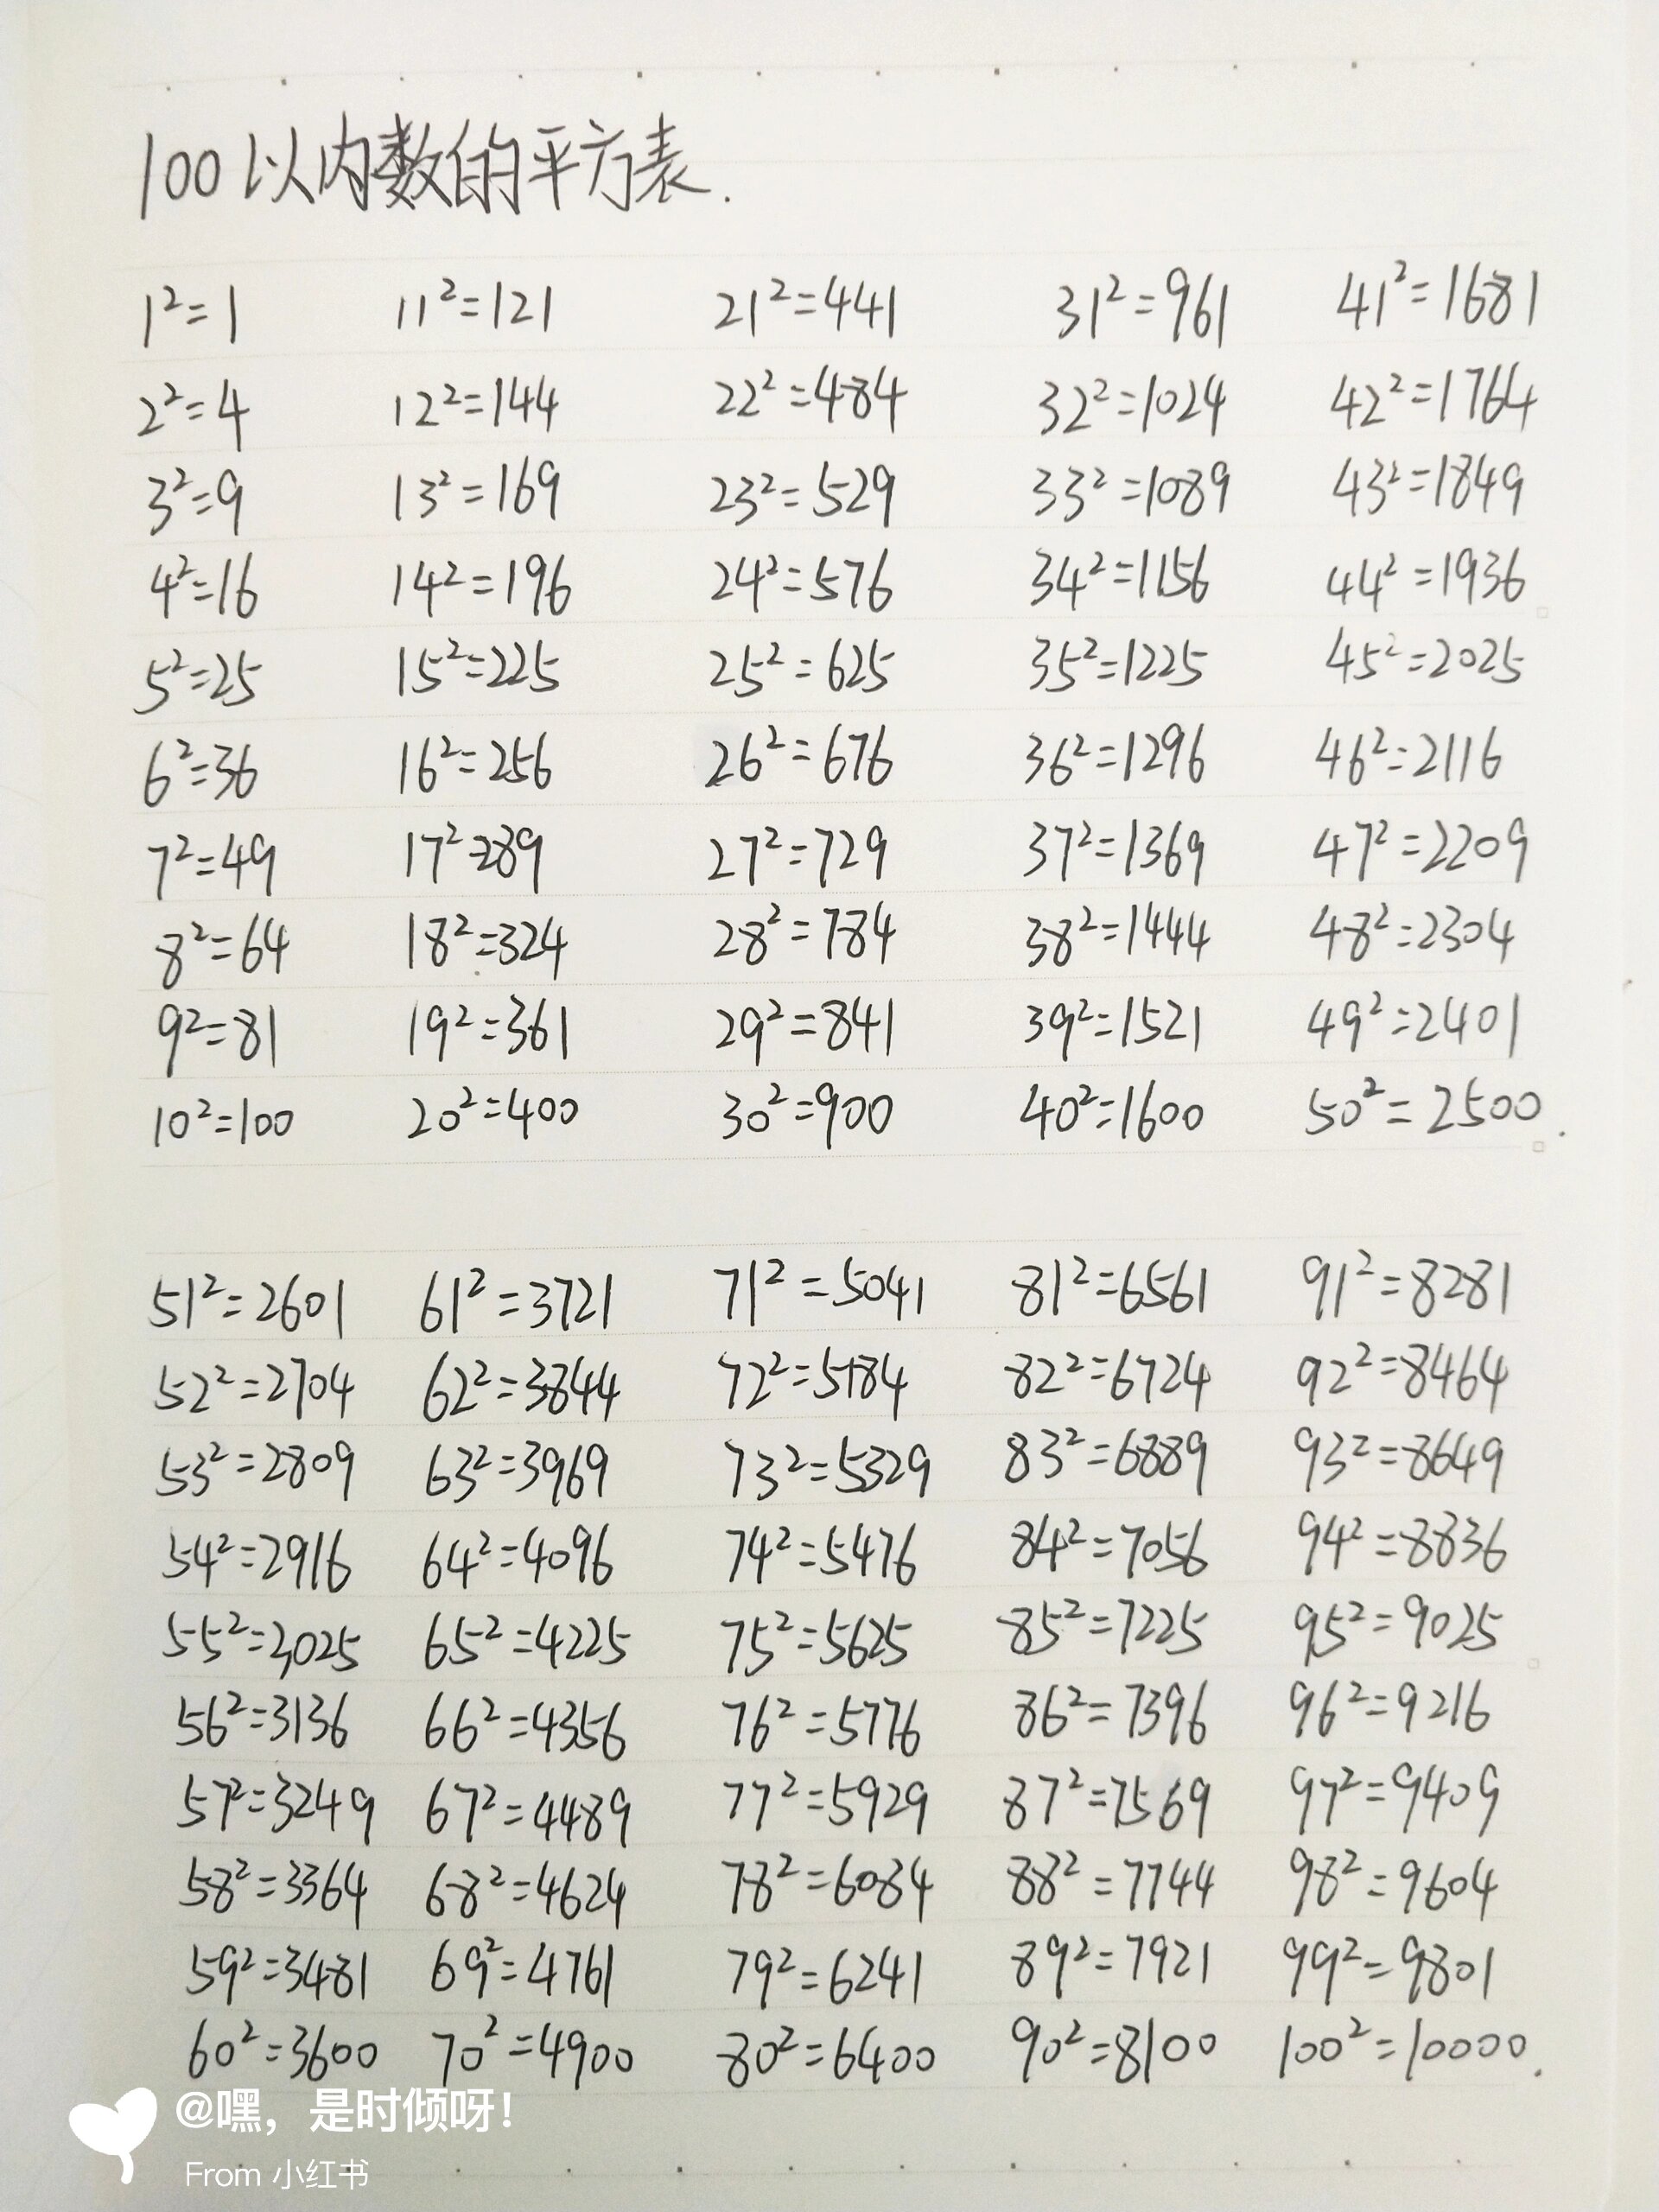 100以内数的平方表.
1²=1 11²=121 21²=441 31²=961 41²=1681
2²=4 12²=144 22²=484 32²=1024 42²=1764
3²=9 13²=169 23²=529 33²=1089 43²=1849
4²=16 14²=196 24²=576 34²=1156 44²=1936
5²=25 15²=225 25²=625 35²=1225 45²=2025
6²=36 16²=256 26²=676 36²=1296 46²=2116
7²=49 17²=289 27²=729 37²=1369 47²=2209
8²=64 18²=324 28²=784 38²=1444 48²=2304
9²=81 19²=361 29²=841 39²=1521 49²=2401
10²=100 20²=400 30²=900 40²=1600 50²=2500.
51²=2601 61²=3721 71²=5041 81²=6561 91²=8281
52²=2704 62²=3844 72²=5184 82²=6724 92²=8464
53²=2809 63²=3969 73²=5329 83²=6889 93²=8649
54²=2916 64²=4096 74²=5476 84²=7056 94²=8836
55²=3025 65²=4225 75²=5625 85²=7225 95²=9025
56²=3136 66²=4356 76²=5776 86²=7396 96²=9216
57²=3249 67²=4489 77²=5929 87²=7569 97²=9409
58²=3364 68²=4624 78²=6084 88²=7744 98²=9604
59²=3481 69²=4761 79²=6241 89²=7921 99²=9801
60²=3600 70²=4900 80²=6400 90²=8100 100²=10000.
@嘿，是时倾呀！
From 小红书